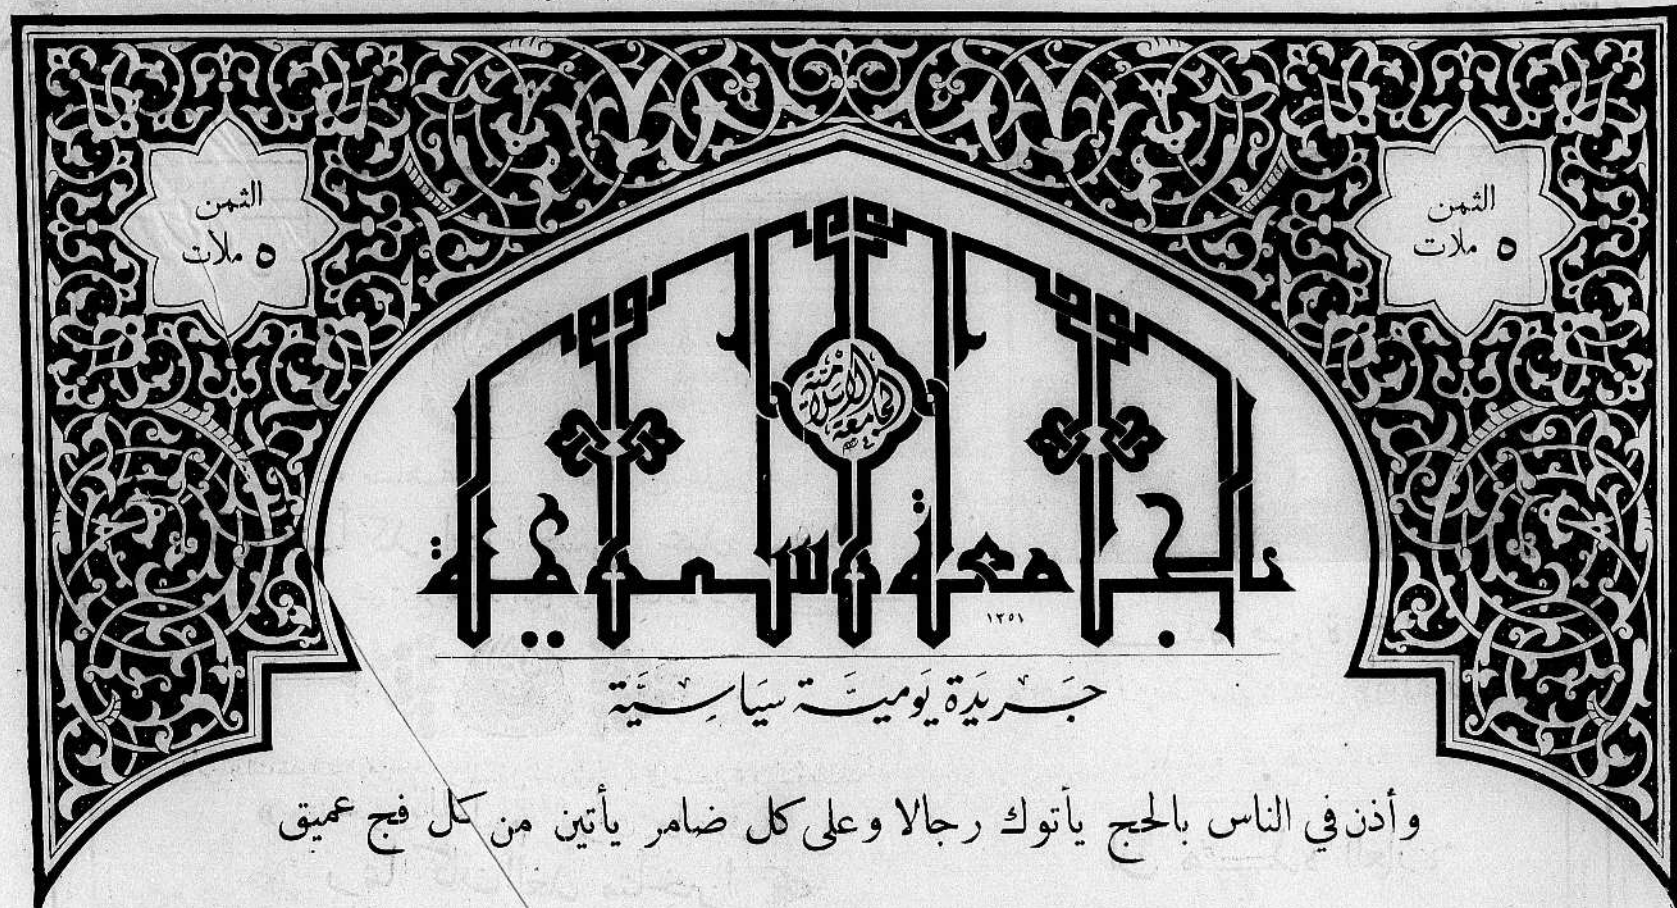 الثمن
٥ ملات
الثمن
٥ ملات
الجامعة الاسلامية
الجامعة الاسلامية
١٣٥١
جَريَدة يَوميَّة سيَاسِيَّة
وأذن في الناس بالحج يأتوك رجالا وعلى كل ضامر يأتين من كل فج عميق